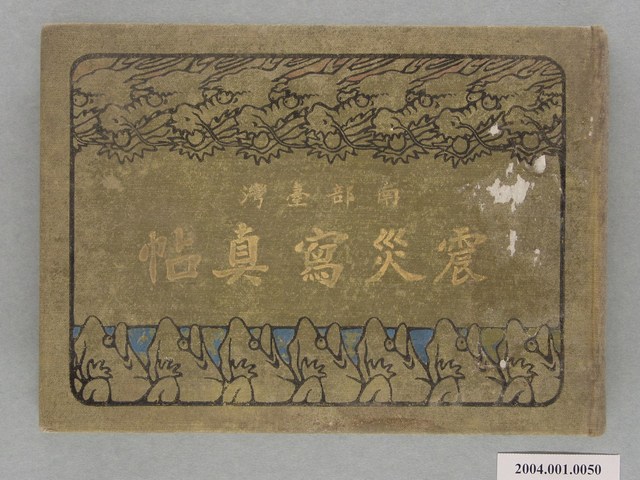 南部臺灣
震災寫真帖
2004.001.0050